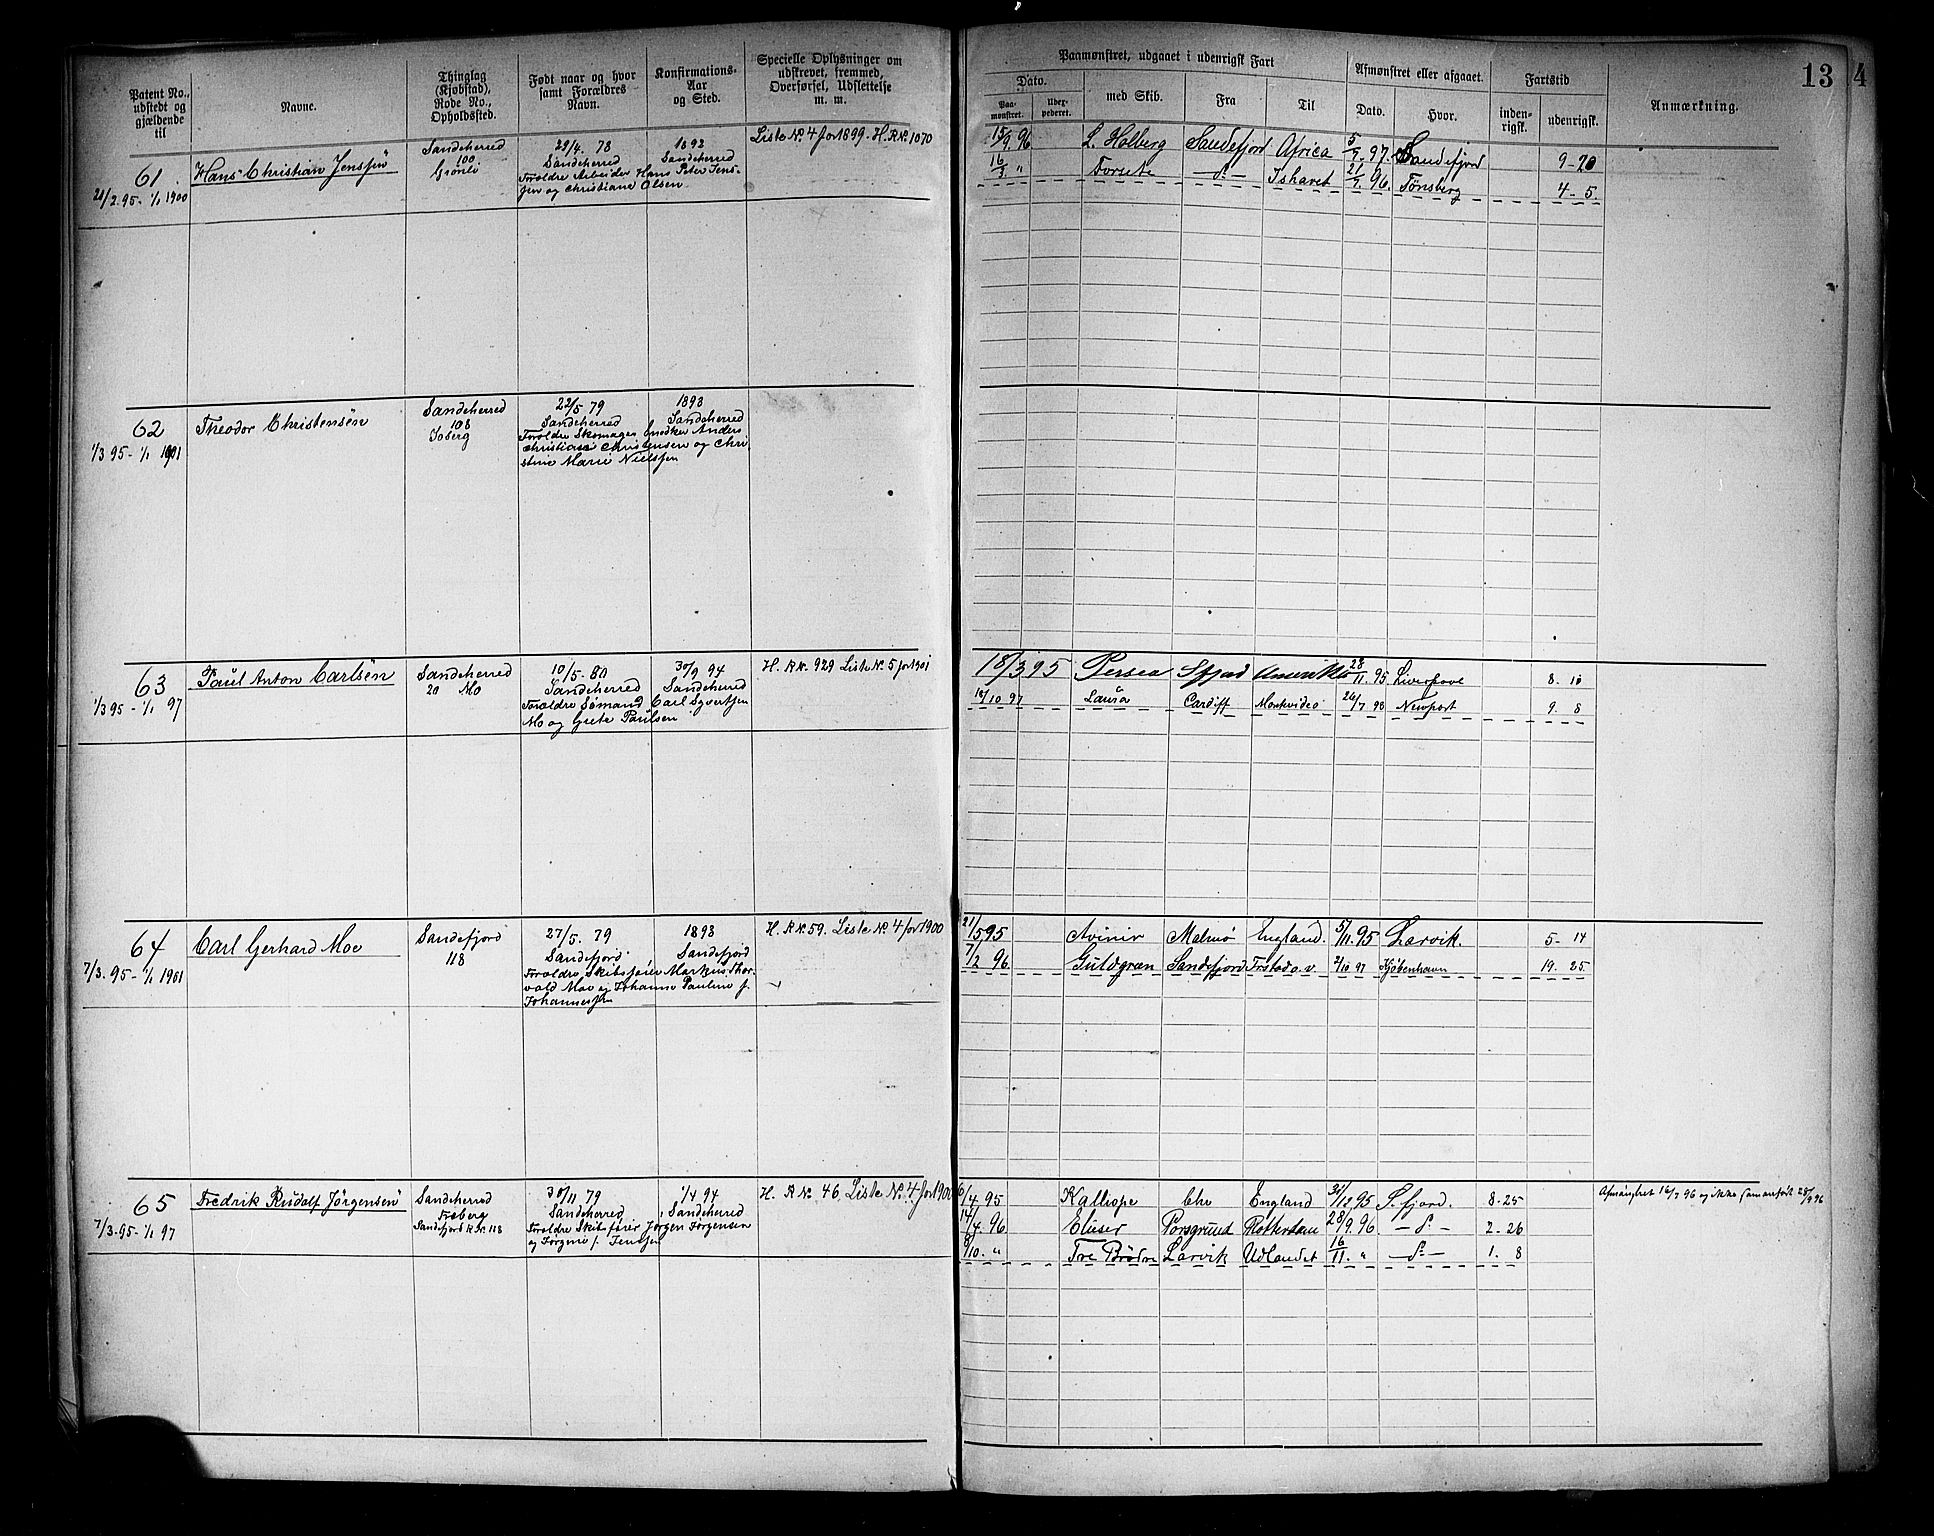 Patent No., udstedt og gjældende til
Navne.
Thinglag (Kjøbstad), Rode No., Opholdssted.
Født naar og hvor samt Forældres Navn.
Konfirmations-Aar og Sted.
Specielle Oplysninger om udskrevet, fremmed, Overførsel, Udslettelse m. m.
Paamønstret, udgaaet i udenrigsk Fart
Dato.
Paa-mønstret.
Uder-pederet.
med Skib.
Fra
Til
Afmønstret eller afgaaet.
Dato.
Hvor.
Fartstid
inden-rigsk.
udenrigsk.
Anmærkning.
13
4
61
21/2.95 - 1/1 1900
Hans Christian Jenssen
Sandeherred
100
Grønli
29/4. 78
Sandeherred
1892
Sandeherred
Forældre Arbeider Hans Peter Jens-
sen og Christiane Olsen
Liste No 4 for 1899. H.R No. 1070
15/9. 96 L. Holberg Sandefjord Africa 5/9. 97. Sandefjord 9-20
16/3 " Forsete - d. - Ishavet 21/9. 96. Tønsberg 4-5.
62
1/3 95 - 1/1 1901
Theodor Christensen
Sandeherred
108
22/5 79
Sandeherred
1893
Sandeherred
Forældre Skomager Anders
Christian Christensen og Chri
stine Marie Nielsen
63
1/3 95 - 1/1 97
Paul Anton Carlsen
Sandeherred
20 Mo
10/5 - 80
Sandeherred
30/9 94
Sandeherred
Forældre Sømand Carl Syvertsen
Mo og Grete Paulsen
H. R No. 929 Liste No. 5 for 1901
18/3 95 Persea Sfjord Amerika 28/11. 95 Liverpool 8-10
16/10 97 Laura Cardiff Montevideo 26/7 98 Newport 9. 8
64
7/3. 95 - 1/1 1901
Carl Gerhard Moe
Sandefjord
118
27/5. 79
Sandefjord
1893
Sandefjord
Forældre Skibsfører Markus Thor
vald Moe og Johanne Pauline f.
Johannessen
H. R No. 59. Liste No. 4 for 1900
21/5 95 Avinir Malmø England. 5/11. 95 Larvik. 5-14
7/2 96. Guldgran Sandefjord Frstad o. v. 2/10 97 Kjøbenhavn 19. 25.
65
7/3. 95 - 1/1 97
Fredrik Rudolf Jørgensen
Sandeherred
Sandefjord R. Nr. 118
30/11 79
Sandeherred
1/4 94
Sandeherred
Forældre Skibsfører Jørgen Jørgensen
og Jørgine f. Jensen
H. R No. 46. Liste No. 4 for 1900
6/4 95 Kalliope Chr England 31/12 95 S. fjord. 8-25
14/4. 96 Elieser Porsgrund Rotterdam 28/9. 96. - d. - 2-26
8/10. " Tre Brødre Larvik Udlandet 16/11. " - d. - 1. 8
Afmønstret 16/7 96 og ikke som anført 28/9 96